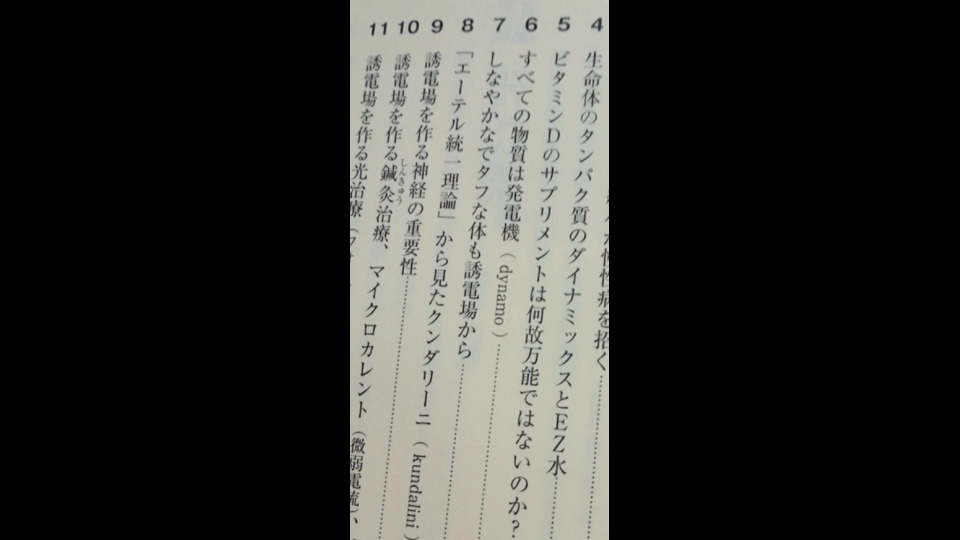 慢性病を招く
4 生命体のタンパク質のダイナミックスとEZ水
5 ビタミンDのサプリメントは何故万能ではないのか?
6 すべての物質は発電機(dynamo)
7 しなやかなでタフな体も誘電場から
8 「エーテル統一理論」から見たクンダリーニ(kundalini)
9 誘電場を作る神経の重要性
10 誘電場を作る鍼灸治療、マイクロカレント(微弱電流)、
しんきゅう
11 誘電場を作る光治療(フ